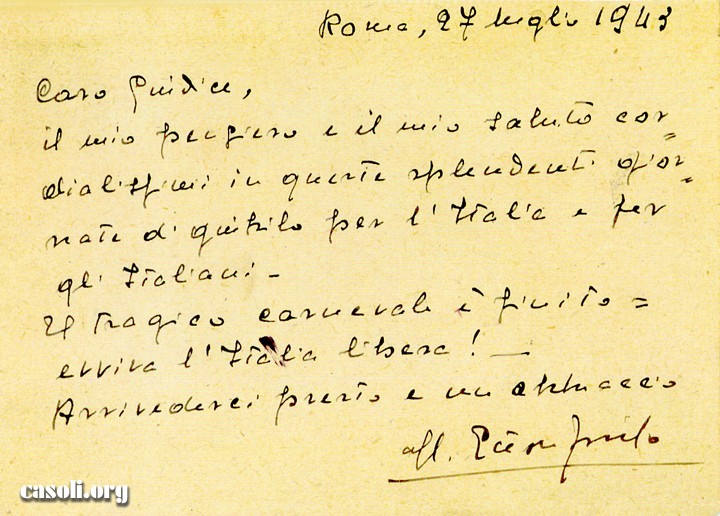 Roma, 27 luglio 1943
Caro Guidice,
il mio pensiero e il mio saluto cor=
dialissimi in queste splendenti gior=
nate di giubilo per l'Italia e per
gli Italiani -
Il tragico carnevale è finito =
evviva l'Italia libera! -
Arrivederci presto e un abbraccio
aff.
casoli.org